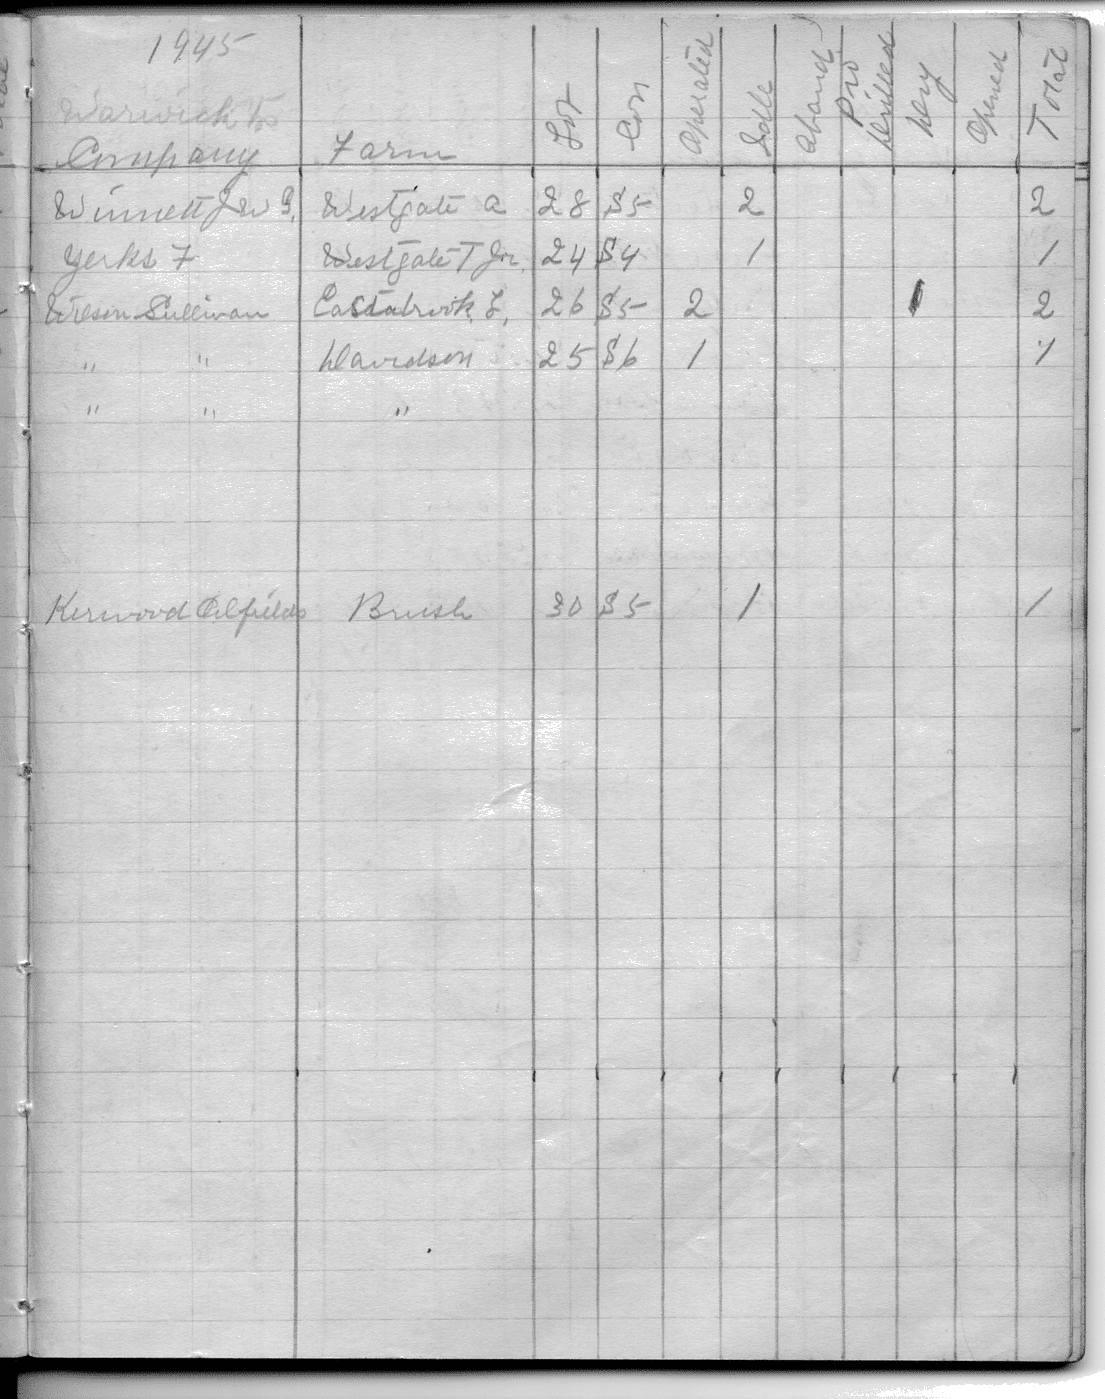 1945
Warwick Tp
Company Farm Lot Con Operated Idle Aband Pro Drilled Dry Opened Total
Winnett J W G. Westgate A 28 S5 2 2
Yerks F Westgate T Jr. 24 S4 1 1
Wilson Sullivan Eastabrook, L, 26 S5 2 1 2
" " Davidson 25 S6 1 1
" " "
Kerwood Oilfields Brush 30 S5 1 1